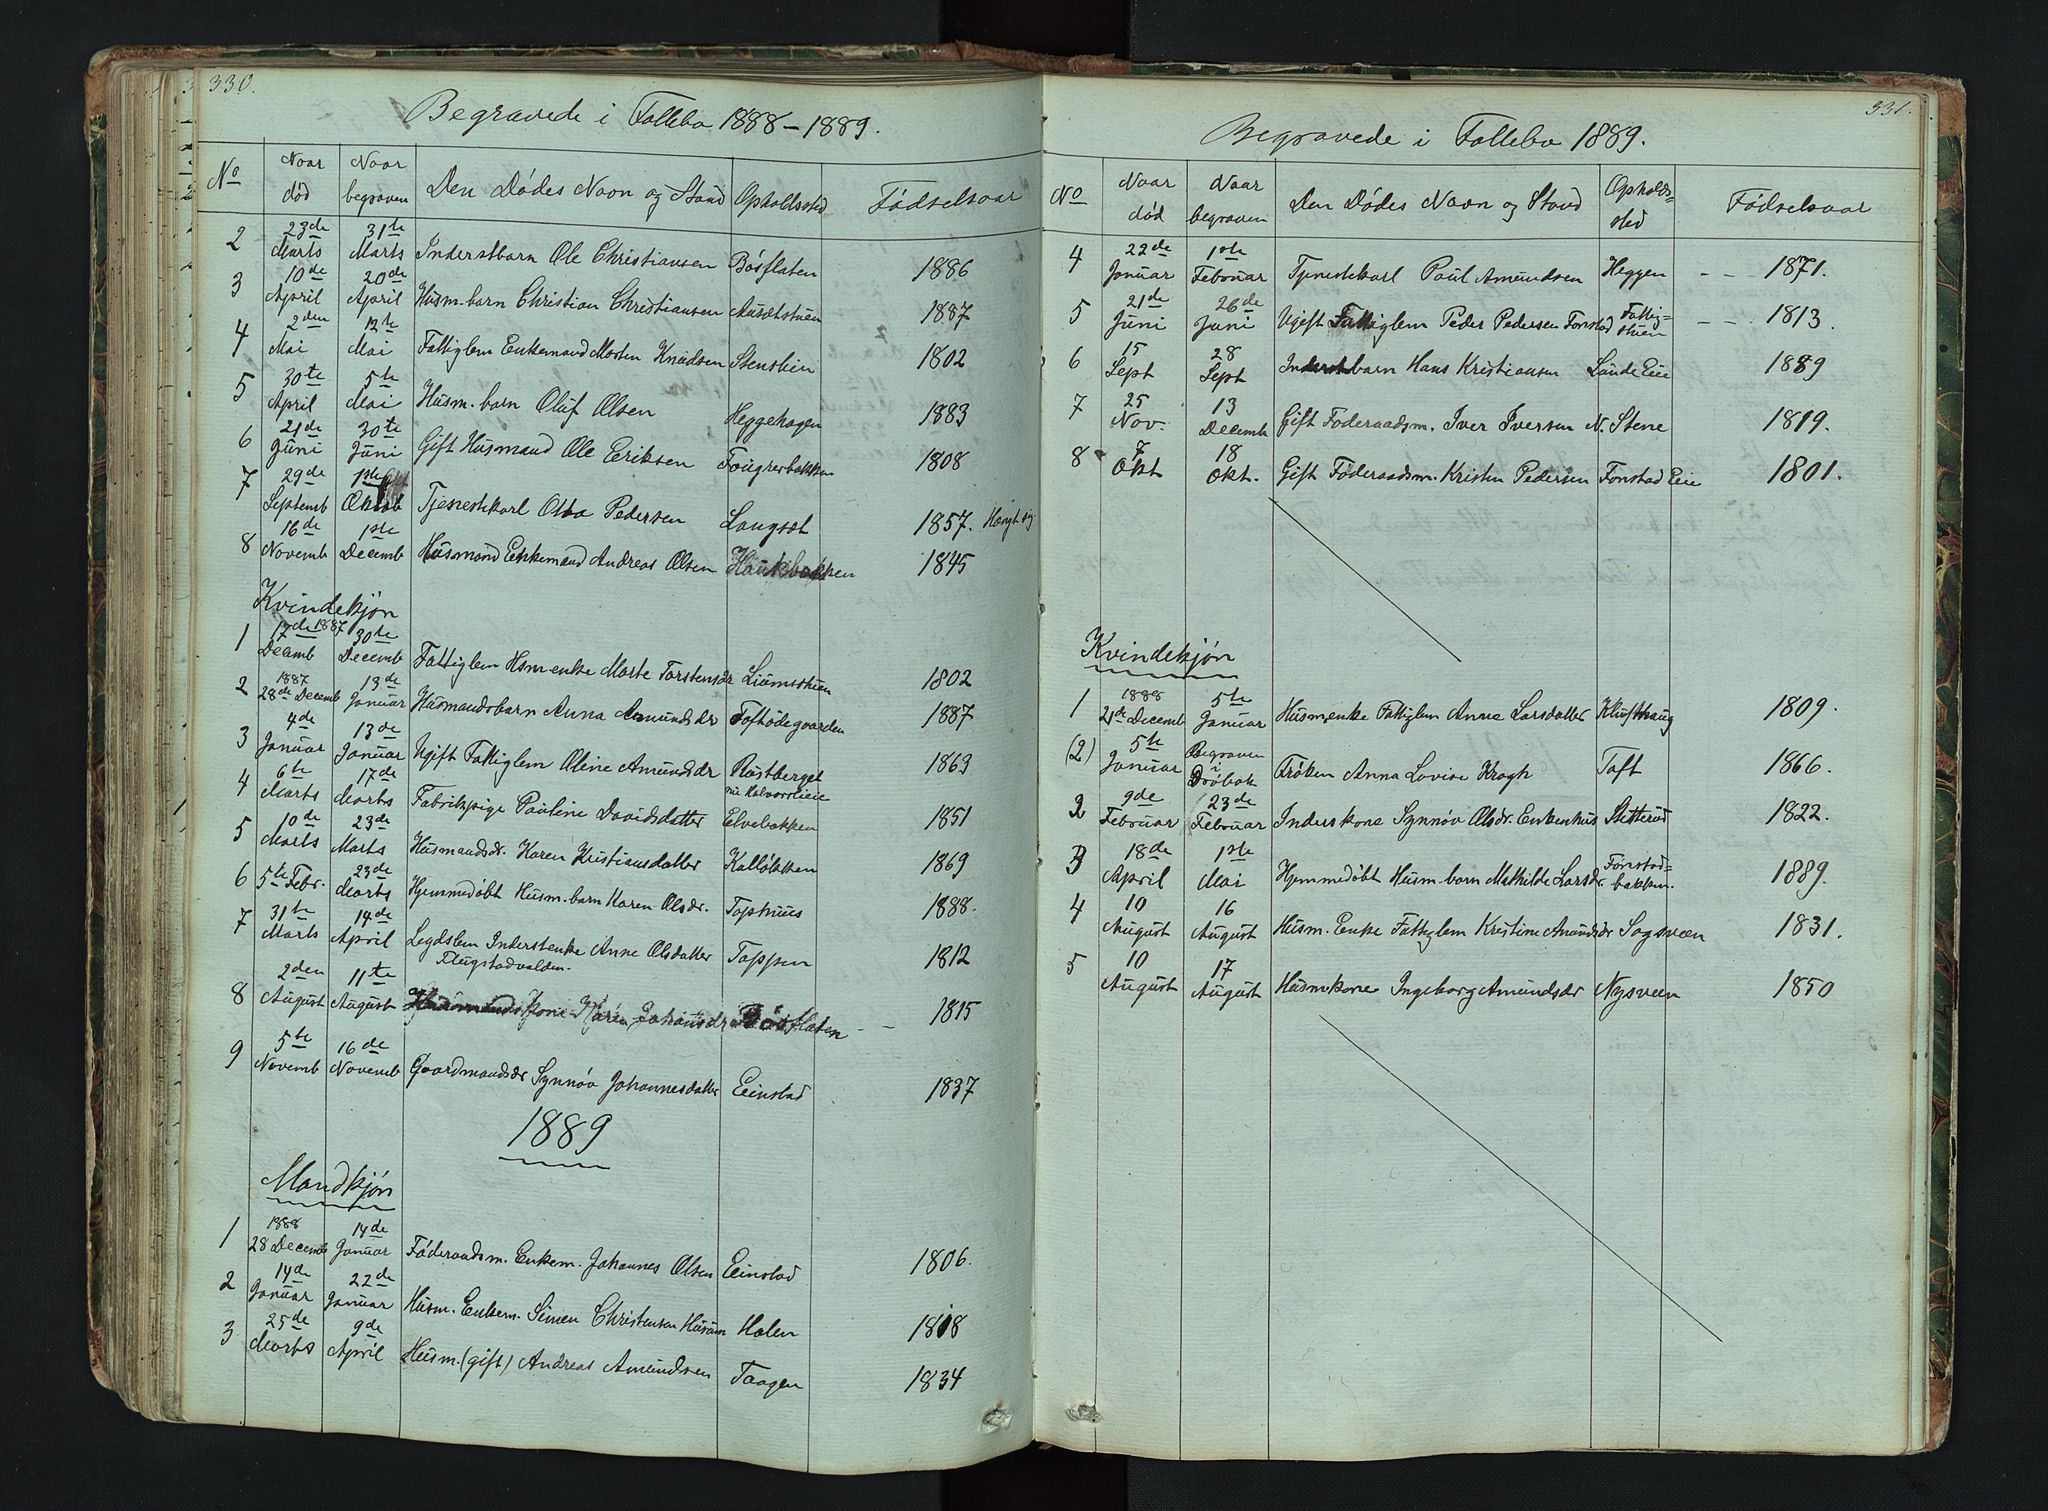 330.
Begravede i Follebo 1888-1889.
No Naar død Naar begraven Den Dødes Navn og Stand Opholdssted Fødselsaar
2 23de Marts 31te Marts Inderstbarn Ole Christiansen Bøsflaten 1886
3 10de April 20de April Husm. barn Christian Christiansen Aulstadstuen 1887
4 2den Mai 12te Mai Fattiglem Enkemand Morten Knudsen Stenslien 1802
5 30te April 5te Mai Husm. barn Oluf Olsen Heggehagen 1883
6 21de Juni 30te Juni Gift Husmand Ole Eriksen 1808
7 29de Septemb 1ste Oktob Tjenestekarl Otto Pedersen Langsæt 1857. Hængt sig
8 16de Novemb 1ste Decemb Husmand Enkemand Andreas Olsen Haukbakken 1845
Kvindekjøn
1 17de 1887 Decemb 30te Decemb Fattiglem Hsm. enke Marte Torstensdr Liumstuen 1802
2 1887 28de Decemb 13de Januar Husmandsbarn Anna Amundsdr Toftødegaarden 1887
3 4de Januar 13de Januar Ugift Fattiglem Oline Amundsdr Rustberget 1863
4 6te Marts 17de Marts Fabrikpige Pauline Davidsdatter Elvebakken 1851
5 10de Marts 23de Marts Husmandsdr. Karen Kristiansdatter Kalløkken 1869
6 5te Febr. 23de Marts Hjemmedøbt Husm. barn Karen Olsdr. Tophuus 1888.
7 31te Marts 14de April Legdslem Inderstenke Anne Olsdatter Toppen 1812
Flugstadvolden.
8 2den August 11te August Husmandskone Karen Johansdr Bøsflaten - - 1815
9 5te Novemb 16de Novemb Gaardmandsdr Synnøv Johannesdatter Einstad 1837
1889
Mandkjøn
1 1888 28 Decemb 14de Januar Føderaadsm. Enkem. Johannes Olsen Einstad 1806.
2 14de Januar 22de Januar Husm. Enkem. Simen Christensen Husum Holen 1818
3 25de Marts 9de April Husm. (gift) Andreas Amundsen Taagen 1834
331.
Begravede i Follebo 1889.
No Naar død Naar begraven Den Dødes Navn og Stand Opholdssted Fødselsaar
4 22de Januar 1ste Februar Tjenestekarl Paul Amundsen Heggen - - 1871.
5 21de Juni 26de Juni Ugift Fattiglem Peder Pedersen Fonstad Fattigstuen - - 1813.
6 15 Sept 28 Sept Inderstbarn Hans Kristiansen Lunde Eie 1889
7 25 Nov. 13 Decemb Gift Føderaadsm. Iver Iversen N. Stene 1819.
8 7 Okt 18 Okt. Gift Føderaadsm. Kristen Pedersen Fonstad Eie 1801.
Kvindekjøn
1 1888 21de Decemb 5te Januar Husm.enke Fattiglem Anne Larsdatter Klufthaug 1809.
(2) 5te Januar Begraven i Drøbak Frøken Anna Lovise Krogh Toft 1866.
2 9de Februar 23de Februar Inderskone Synnøv Olsdr. Enkenhus Sletterud 1822.
3 18de April 1ste Mai Hjemmedøbt Husm. barn Mathilde Larsdr. Fonstadbakken. 1889.
4 10 August 16 August Husm. Enke Fattiglem Kristine Amundsdr Sagsveen 1831.
5 10 August 17 August Husmkone Ingeborg Amundsdr Nysveen 1850